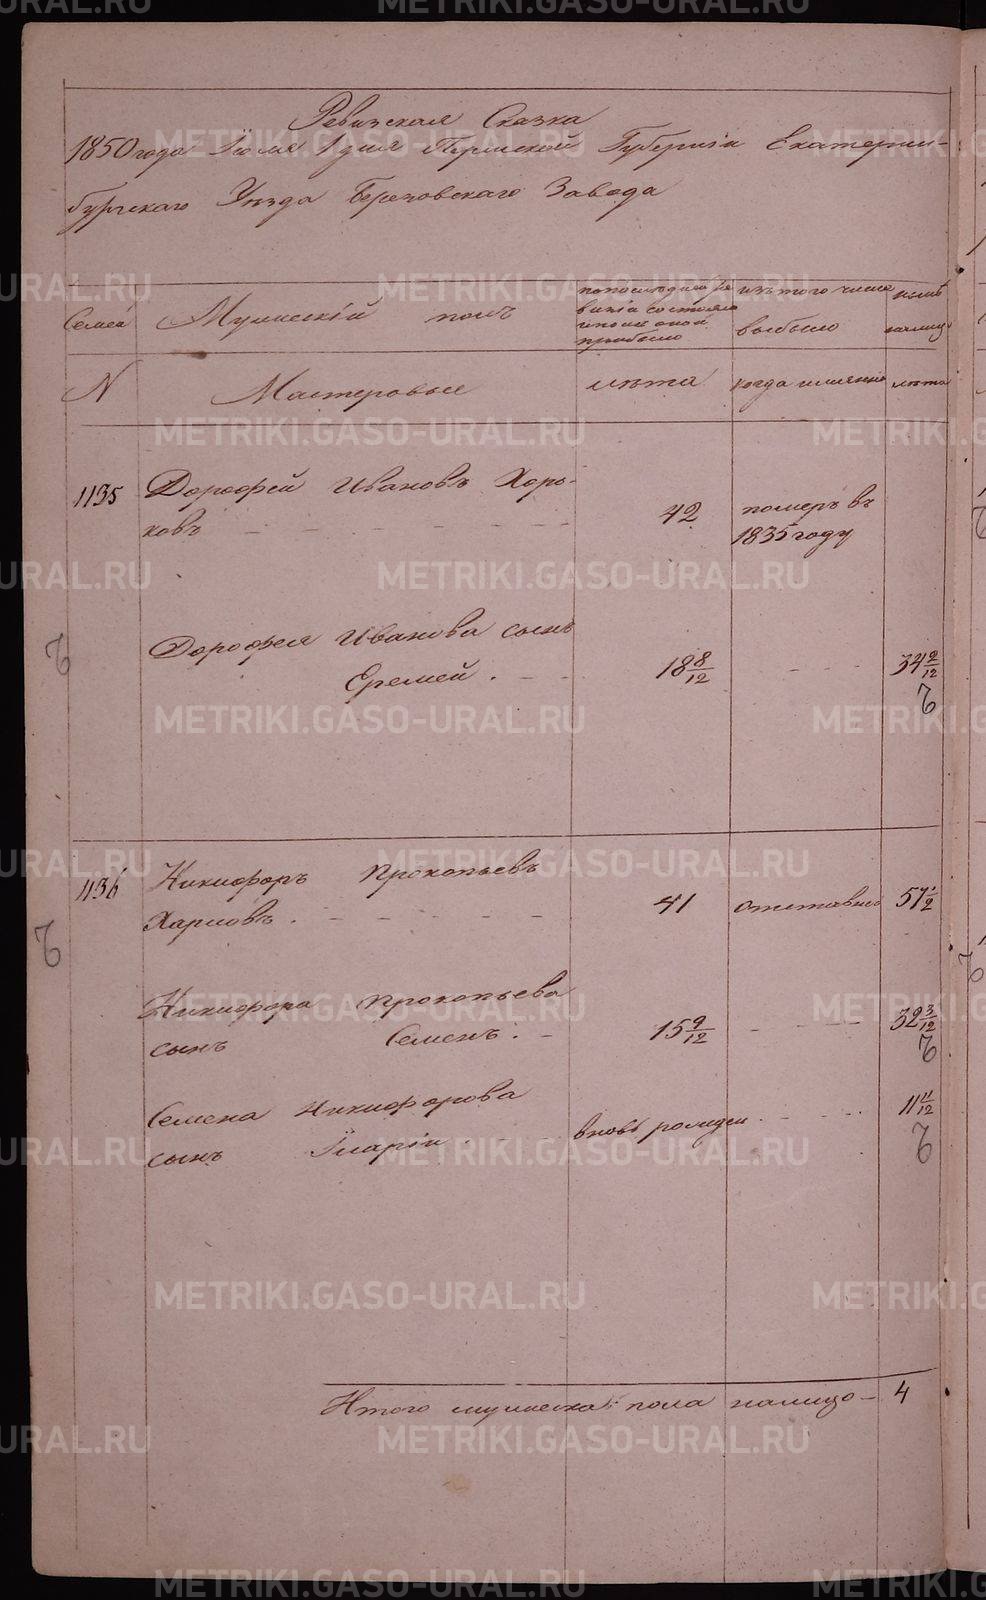 Ревизская Сказка
1850 года Іюля 1 дня Пермской Губерніи Екатерин-
бургскаго Уезда Березовскаго Завода
Семей
Мужескій полъ
по последней ре
визіи состояло
и после оной
прибыло
изъ того числа
выбыло
ныне
налицо
N
Мастеровые
лета
когда именно
лета
1135
Дорофей Ивановъ Хоро-
ковъ
42
померъ въ
1835 году
Дорофея Иванова сынъ
Еремей
18 8/12
34 2/12
1136
Никифоръ Прокопьевъ
Харловъ
41
отставнь
57 1/2
Никифора Прокопьева
сынъ Семенъ
15 9/12
32 3/12
Семена Никифорова
сынъ Іларіи
вновь рожден
11 11/12
Итого мужеска пола налицо - 4
METRIKI.GASO-URAL.RU